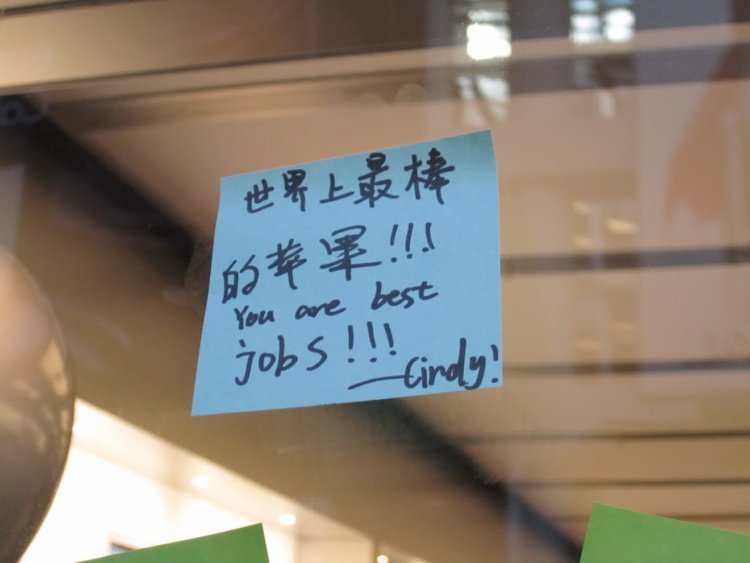 世界上最棒
的苹果!!!
You are best
jobs!!!
—Cindy!